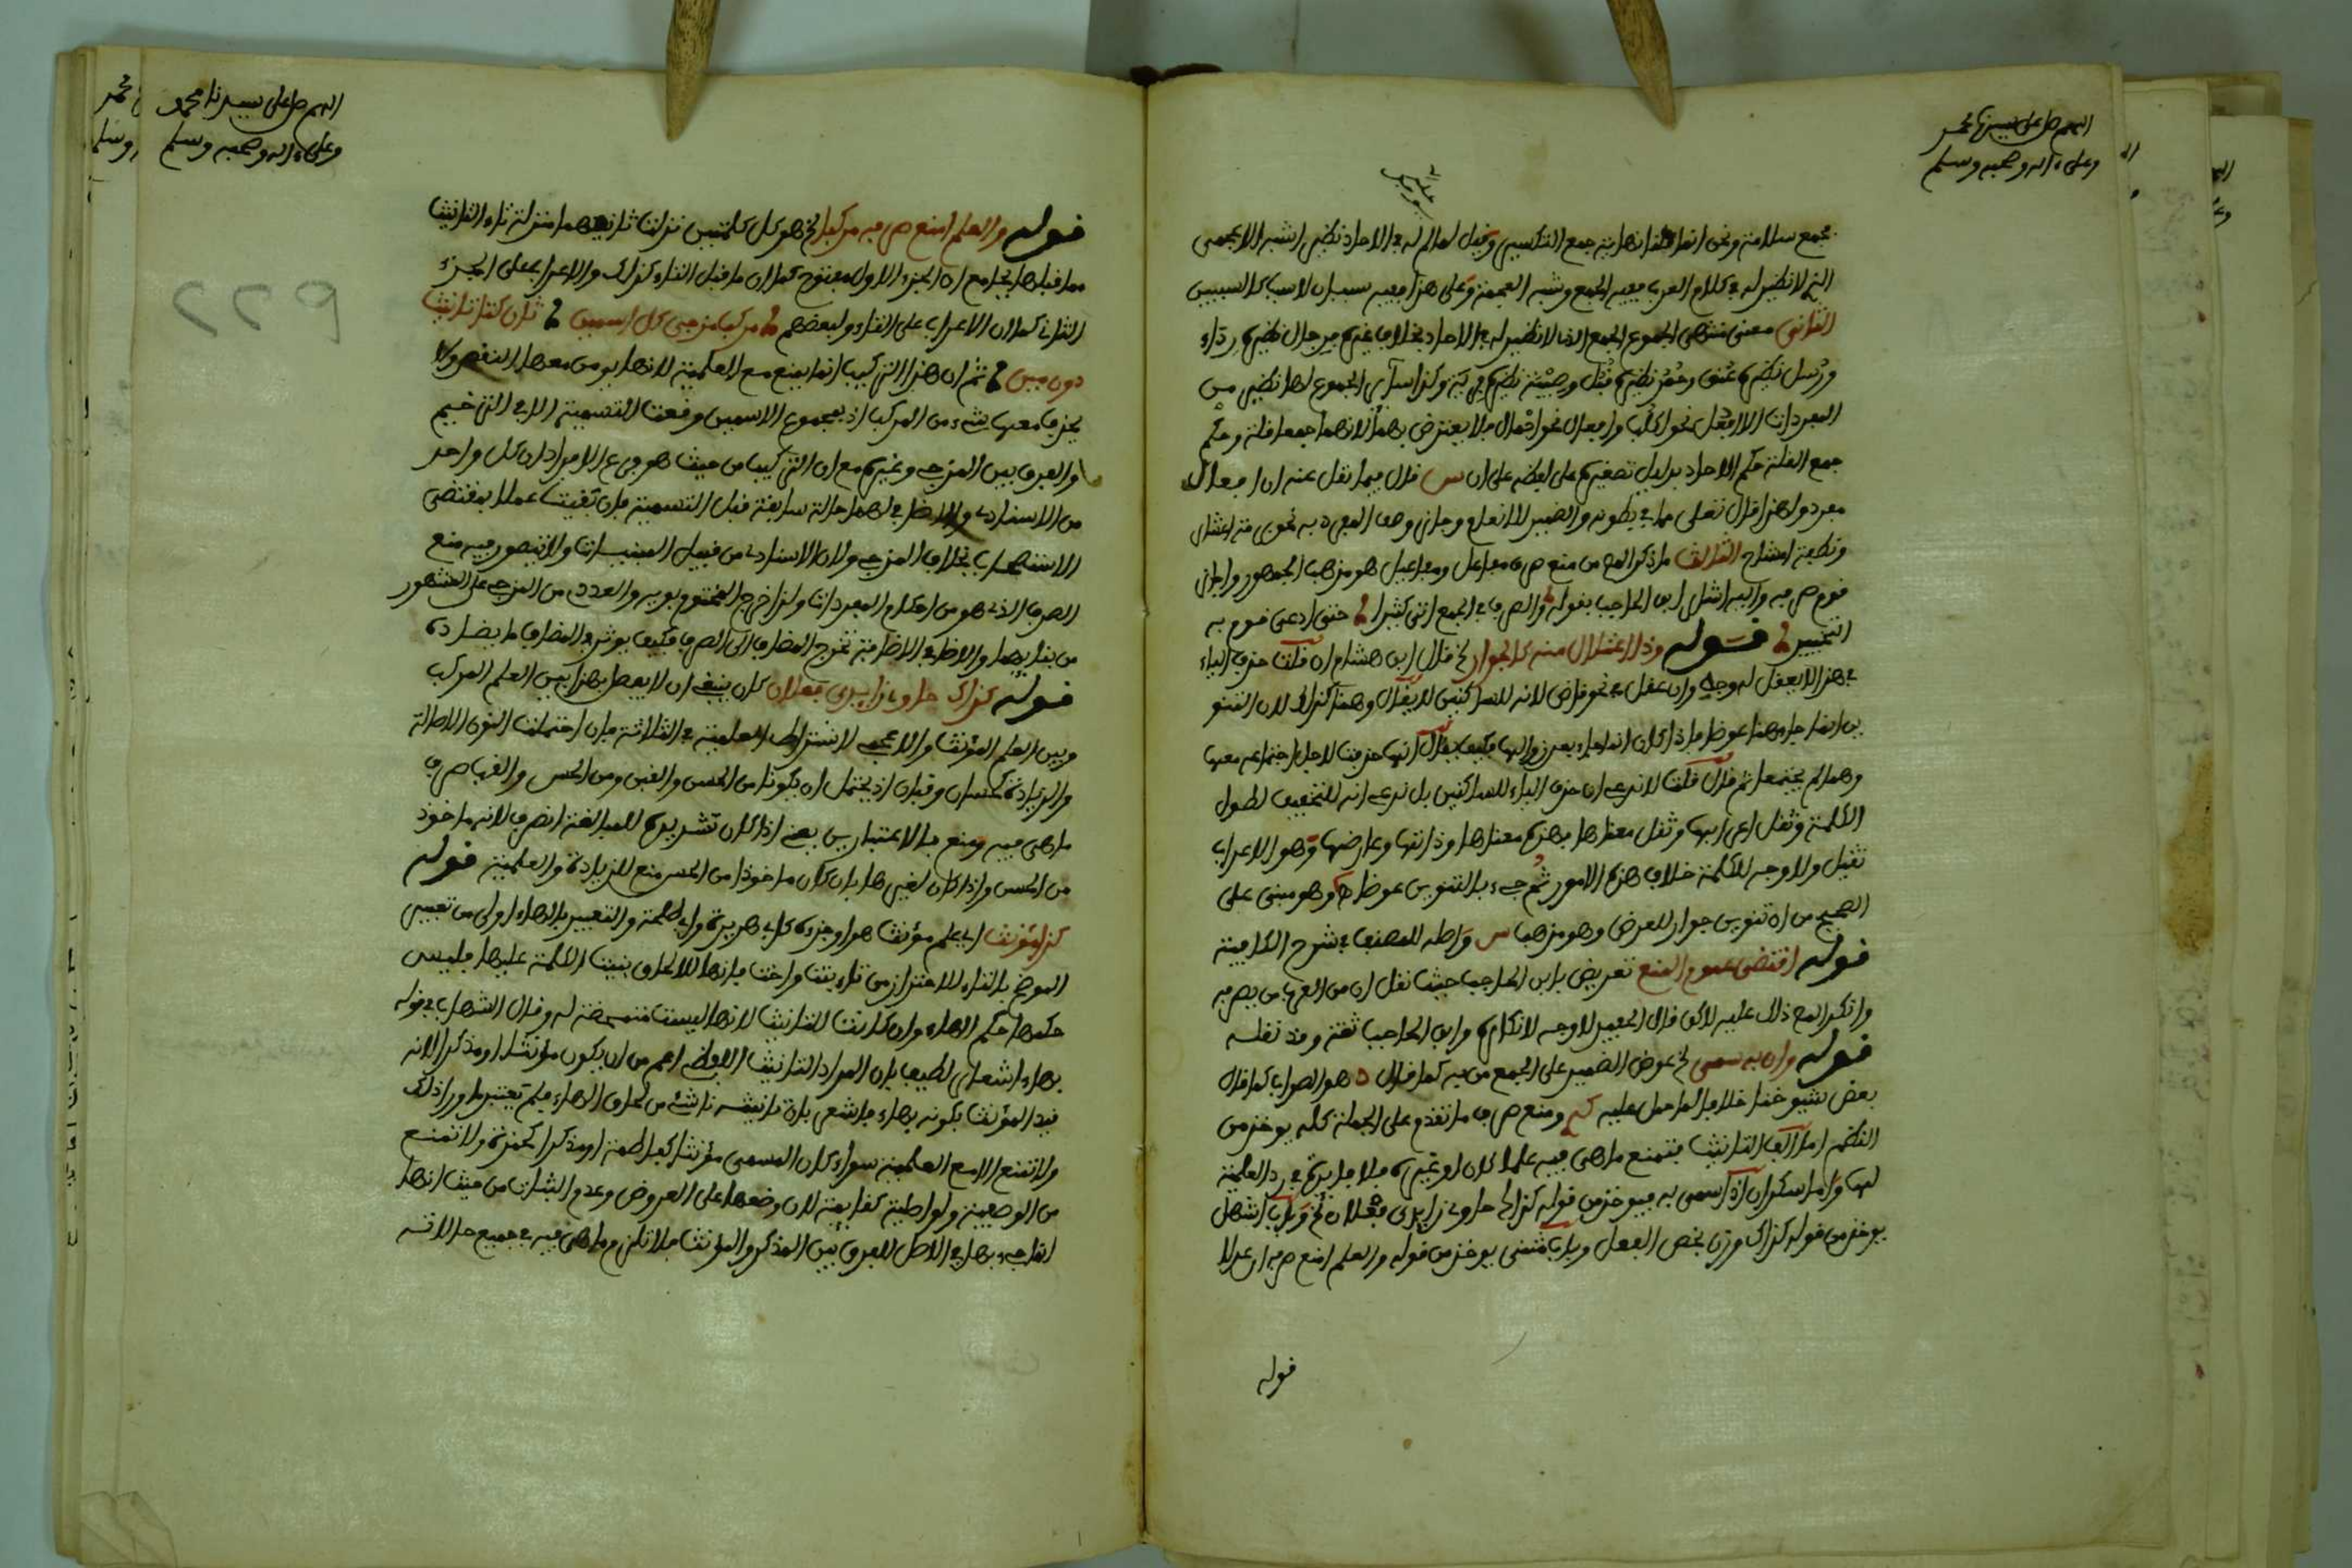 اللهم صل على سيدنا محمد
وعلى ءاله وصحبه وسلم
جمع سلامة ونحن انما قلنا نهاية جمع التكسير وقيل لما لم له في الاحاد نظير اشبه الاعجمي
الذي لا نظير له في كلام العرب ففيه الجمع وشبه العجمة وعلى هذا ففيه سببان لا سبب كالسببين
الثاني معنى منتهى الجموع الجمع الذي لا نظير له في الاحاد بخلاف غيره فرجال نظيره رداء
ورسل نظيره عنق وحمر نظيره قفل وصبية نظيره وكذا سائر الجموع لها نظير من
المفردات الا افعل نحو اكلب وافعال نحو اجمال فلا يعترض بهما لانهما جمعا قلة وحكم
جمع القلة حكم الاحاد بدليل تصغيره على لفظه على ان س قال فيما نقل عنه ان افعال
مفرد ولهذا قال تعلى مما في بطونه والضمير للانعام وجاز وصف المفرد به نحو برمة اعشار
ونطفة امشاج الثالث ما ذكر المص من منع صرف مفاعل ومفاعيل هو مذهب الجمهور واجاز
قوم صرفه واليه اشار ابن الحاجب بقوله والصرف في الجمع اتى كثيرا حتى ادعى قوم به
التخيير قوله وذا اعتلال منه كالجوار الخ قال ابن هشام ان قلت حذف الياء
في هذا لا يعقل له وجه وان عقل في نحو قاض لانه للساكنين لا يقال وهذا كذلك لان التنو
ين انما جاء هنا عوضا فاذا كان انما جاء بعد زوالها فكيف يقال انها حذفت لاجل اجتماعه معها
وهما لم يجتمعا ثم قال قلت لا ندعي ان حذف الياء للساكنين بل ندعي انه للتخفيف لطول
الكلمة وثقل اعرابها وثقل معناها فهذه معناها وذاتها وعارضها وهو الاعراب
ثقيل ولا وجه للكلمة خلاف هذه الامور ثم جيء بالتنوين عوضا وهو مبنى على
الصحيح من ان تنوين جوار للعوض وهو مذهب س واطه للمصنف في شرح الكافية
قوله اقتضى عموم المنع تعريض بابن الحاجب حيث نقل ان من العرب من يصرفه
وانكر المص ذلك عليه لاكن قال الجعبري لا وجه لانكاره وابن الحاجب ثقة وقد نقله
قوله وان به سمى الخ عوض الضمير على الجمع من فيه كما قال هو الصواب كما قال
بعض شيوخنا خلافا لما حمل عليه ومنع صرف ما تقدم على الجملة كله يوخذ من
النظم اما الف التانيث فتمنع ما هي فيه علما كان او غيره فلا فايدة في رد العلمية
لها واما سكران اذا سمي به فيوخذ من قوله كذاك حاوي زايدي فعلان الخ وباب اشهل
يوخذ من قوله كذاك وزن يخص الفعل وباب مثنى يوخذ من قوله والعلم امنع صرفه ان عدلا
قوله
اللهم صل على سيدنا محمد
وعلى ءاله وصحبه وسلم
قوله والعلم امنع صرفه مركبا الخ هو كل كلمتين نزلت ثانيتهما منزلة تاء التانيث
مما قبلها بجامع ان الجزء الاول مفتوح كما ان ما قبل التاء كذلك والاعراب على الجزء
الثاني كما ان الاعراب على التاء ولبعضهم مركب مزجي كل اسمين ثان كتا تانيث
دون مين ثم ان هذا التركيب انما يمنع مع العلمية لانها يومن معها النقص ولا
يحذف معها شيء من المركب اذ بمجموع الاسمين وقعت التسمية الا في الترخيم
والفرق بين المزجي وغيره مع ان التركيب من حيث هو فرع الافراد ان كل واحد
من الاسنادي والاضافي لهما حالة سابقة قبل التسمية فان بقيت عملا بمقتضى
الاستصحاب بخلاف المزجي ولان الاسنادي من قبيل المبنيات ولا يتصور فيه منع
الصرف الذي هو من احكام المعربات ولذا خرج المختوم بويه والعددي من المزجي على المشهور
من بنايهما والاضافي الاضافة تخرج المضاف الى الصرف فكيف يوثر في المضاف ما يضاده
قوله كذاك حاوي زايدي فعلان كان ينبغي ان لا يفصل بهذا بين العلم المركب
وبين العلم المؤنث والاعجمي لاشتراط العلمية في الثلاثة فان احتملت النون الاصالة
والزيادة كحسان وقبان اذ يحتمل ان يكونا من الحسن والقبن ومن الحس والقب صرف
ما هي فيه ومنع بالاعتبارين يعني اذا كان تشديده للمبالغة انصرف لانه ماخوذ
من الحسن واذا كان لغيرها بان كان ماخوذا من الحس منع للزيادة والعلمية قوله
كذا مؤنث اي علم مؤنث هو او جزءه كابي هريرة وابي طلحة والتعبير بالهاء اولى من تعبير
الموضح بالتاء للاحتراز من تاء بنت واخت فانها للالحاق بنيت الكلمة عليها فليس
حكمها حكم الهاء وان كانت للتانيث لانها ليست متمحضة له وقال الشهاب في قوله
بهاء اشعار لطيف بان المراد التانيث اللفظي اعم من ان يكون مؤنثا او مذكرا لانه
قيد المؤنث بكونه بهاء فاشعر بان تانيثه ناشئ من لحاق الهاء فلم يعتبر ما وراء ذلك
ولا تمنع الا مع العلمية سواء كان المسمى مؤنثا كفاطمة او مذكرا كحمزة ولا تمنع
من الوصفية ولو اصلية كقايمة لان وضعها على العروض وعدم الثبات من حيث انها
انما جيء بها في الاصل للفرق بين المذكر والمؤنث فلا تلزم ما هي فيه في جميع حالاته
٢٢٩